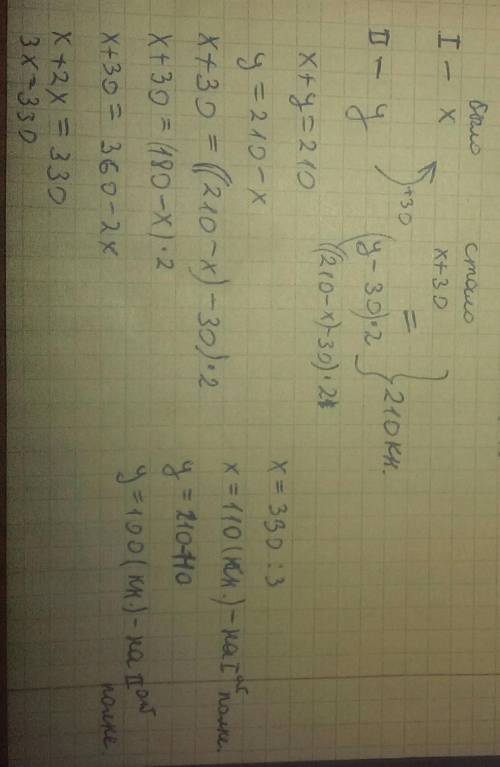 было стало
I — x x+30
+30 =
II — y (y-30)·2 } 210 кн.
((210-x)-30)·2
x+y=210
y=210-x
x+30=((210-x)-30)·2
x+30=(180-x)·2
x+30=360-2x
x+2x=330
3x=330
x=330:3
x=110(кн.)-на I ой полке.
y=210-110
y=100(кн.)-на II ой полке.